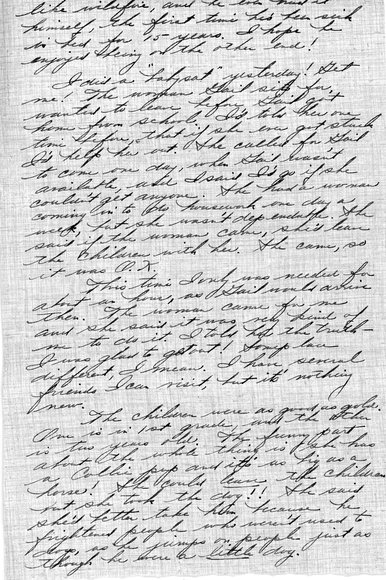 like wildfire, and he took most it
himself, the first time he's been sick
in bed for 5 years. I hope he
enjoyed being on the other end!
I did a "babysat" yesterday! Get
me! The woman Gail sits for,
wanted to leave before Gail got
home from school. I'd told her one
time before, that if she ever got stuck
I'd help her out. She called for Gail
to come one day, when Gail wasn't
available, and I said I'd go if she
couldn't get anyone. She had a woman
coming in to do housework one day a
week, but she wasn't dependable. She
said, if the woman came, she'd leave
the children with her. She came, so
it was O.K.
This time I only was needed for
about an hour, as Gail would arrive
then. The woman came for me
and she said it was very kind of
me to do it. I told her the truth-
I was glad to get out! Somep'n
different, I mean. I have several
friends I can visit, but it's nothing
new.
The children were as good as gold.
One is in 1st grade, and the other
is two years old. The funny part
about the whole thing is she has
a Collie pup and it's as big as a
horse! She could leave the children
but she took the dog!! She said
she'd better take him because he
frightened people who weren't used to
dogs, as he jumps on people just as
though he were a little dog.